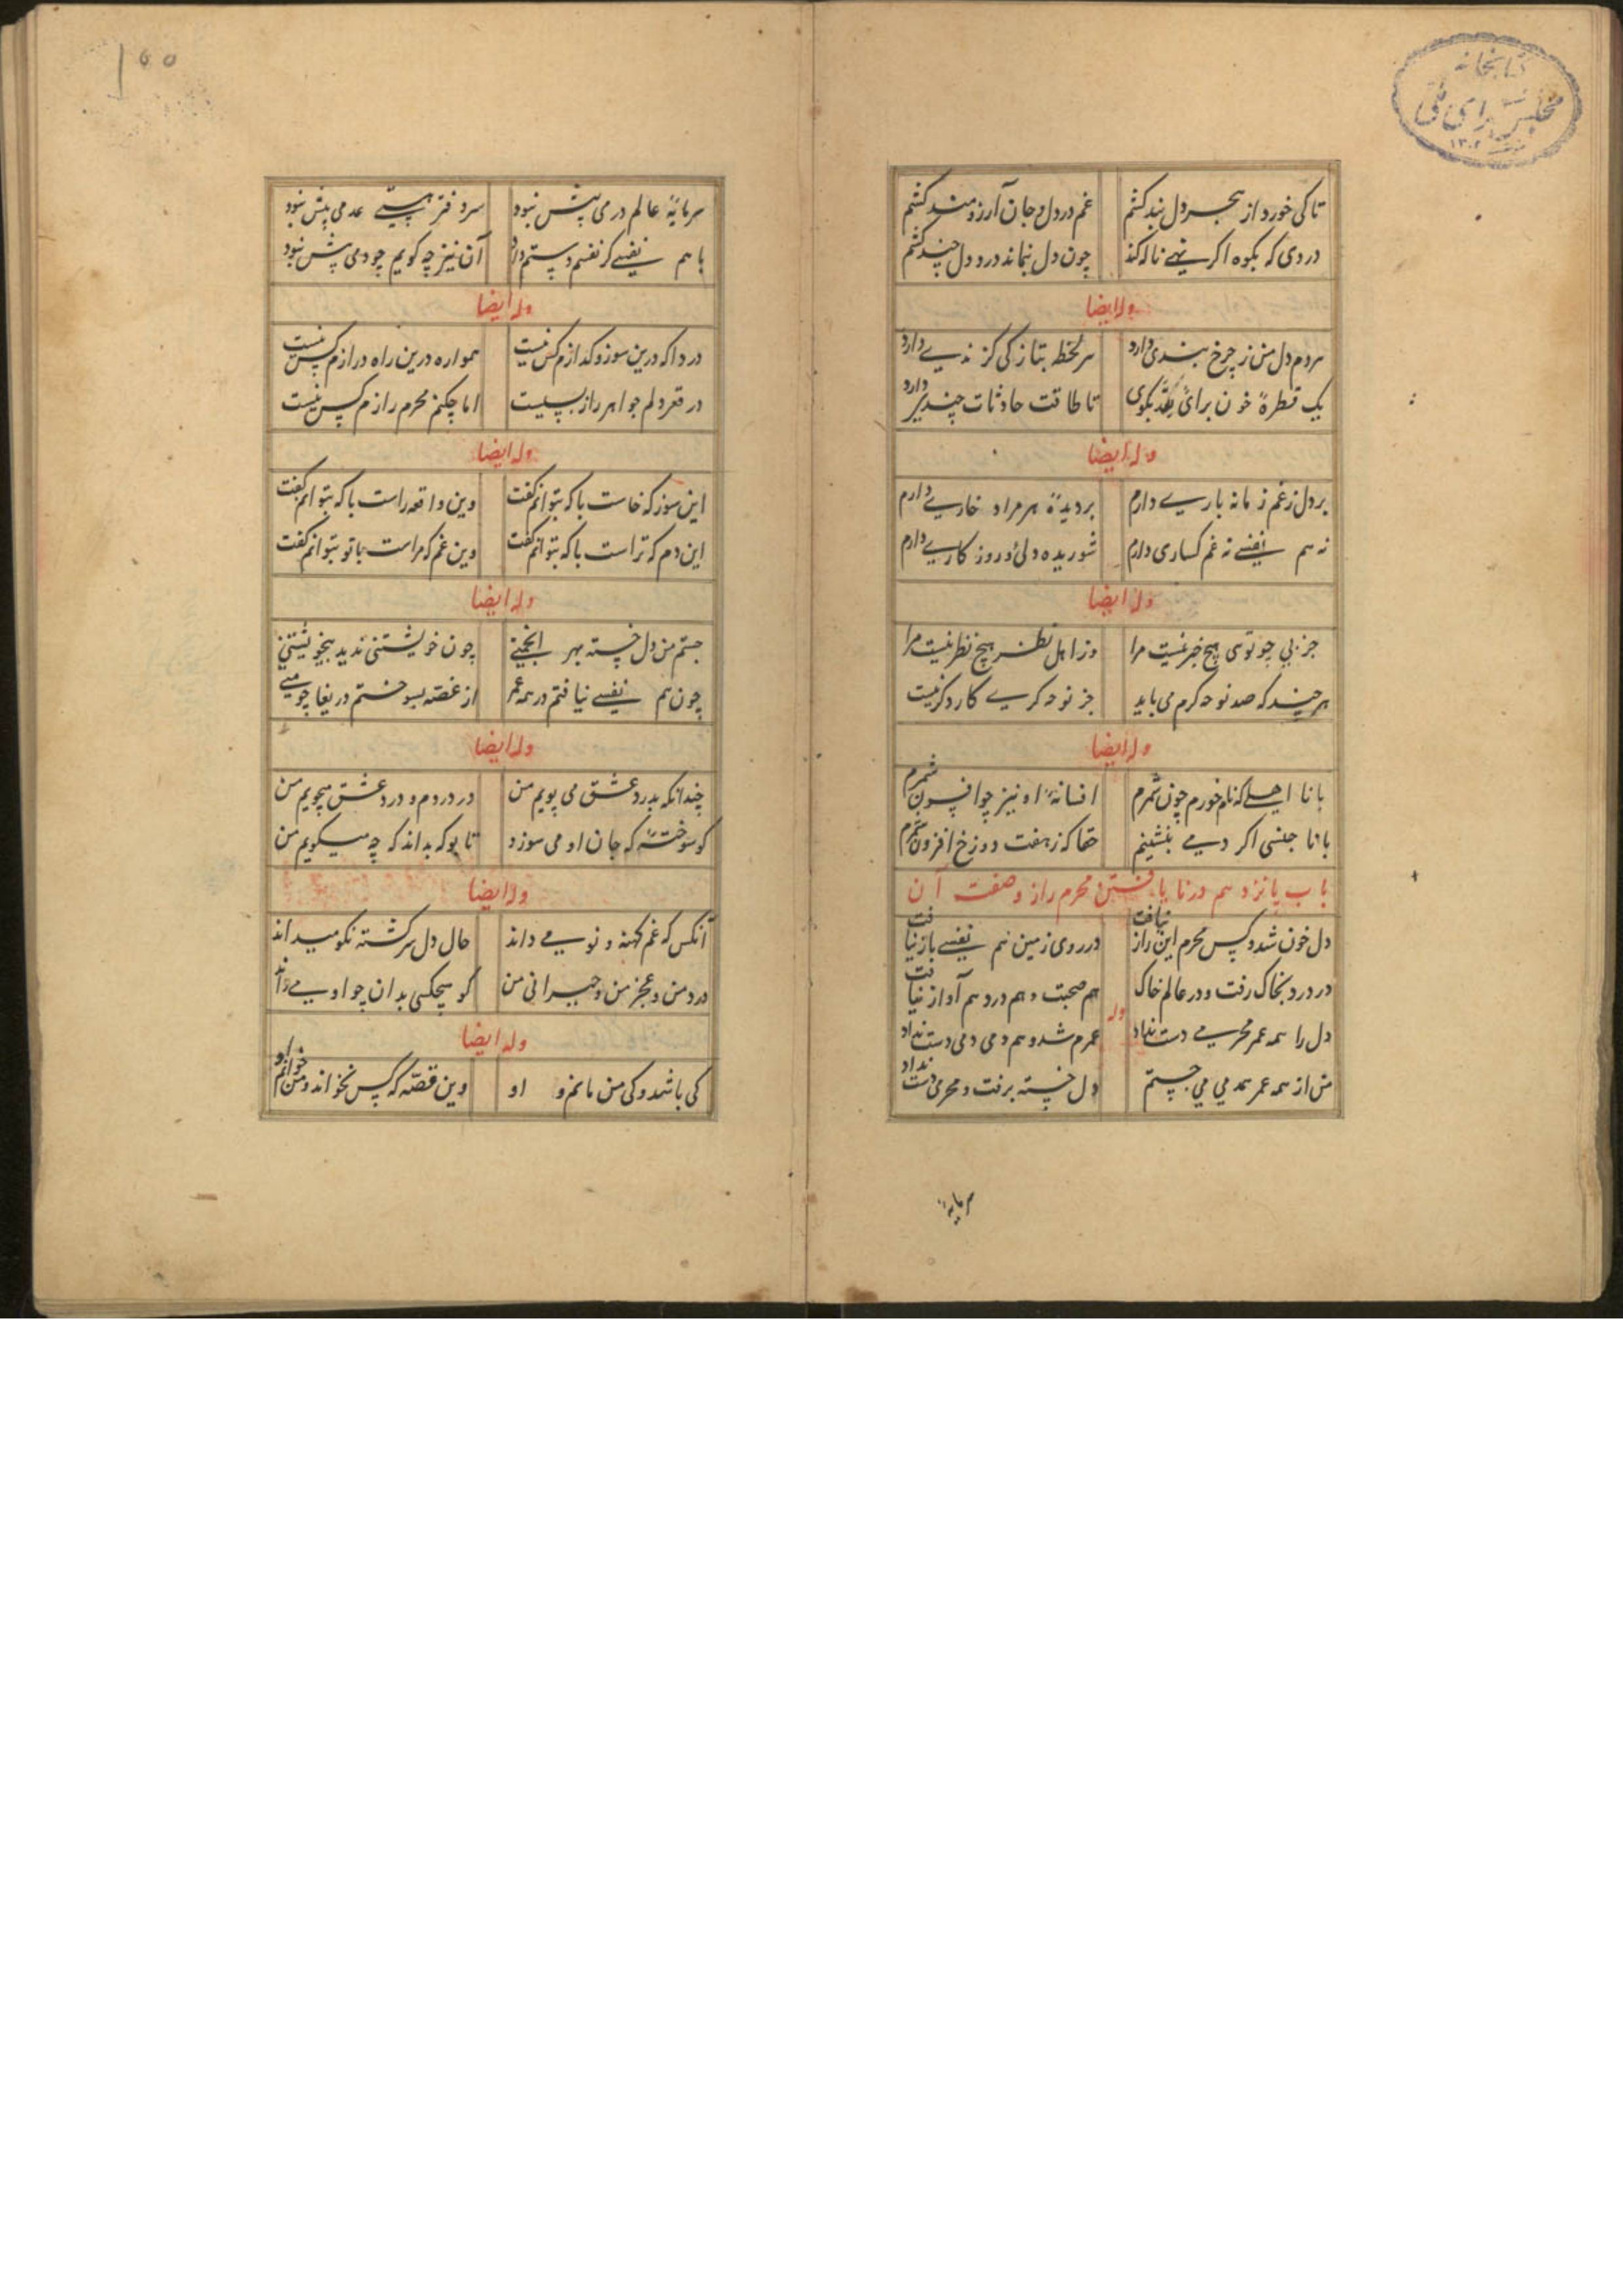 کتابخانه
مجلس شورای ملی
۱۳۰۲
تا کی خورد از هجر دل بند کشم غم در دل و جان آرزومند کشم
دردی که بکوه اگر نهی ناله کند چون دل بنماند درد دل چند کشم
وله ایضا
هردم دل من ز چرخ بندی دارد هر لحظه بتازگی گزندی دارد
یک قطرهٔ خون برای بگوی تا طاقت حادثات چند دارد
وله ایضا
بر دل ز غم زمانه باری دارم بر دیدهٔ هر مراد خاری دارم
نه هم نفسی نه غم کساری دارم شوریده دلی و روزکاری دارم
وله ایضا
جز بی چو توسی هیچ خبر نیست مرا وز اهل نظر هیچ نظر نیست مرا
هر چند که صد نوحه کرم می باید جز نوحه کری کار دکر نیست
وله ایضا
با نا اهلی که نام خورم چون شمرم افسانهٔ او نیز چو افسون شمرم
با نا جنسی اکر دمی بنشینم حقا که ز هفت دوزخ افزون شمرم
باب پانزدهم در نایافتن محرم راز و صفت آن
دل خون شد و کس محرم این راز نیافت در روی زمین هم نفسی باز نیافت
در درد بخاک رفت و در عالم خاک هم صحبت و هم درد هم آواز نیافت
وله
دل را همه عمر محرمی دست نداد عمرم شد و هم دمی دمی دست نداد
من از همه عمر همدمی می جستم دل خسته برفت و محرمی دست نداد
سرمایهٔ
۱۵۵
سرمایهٔ عالم درمی بیش نبود سر دفتر هستی عدمی بیش نبود
با هم نفسی کر نفسم دستم داد آن نیز چه کویم چو دمی بیش نبود
وله ایضا
دردا که درین سوز و کدازم کس نیست همواره درین راه درازم کس نیست
در قعر دلم جواهر راز بسیست اما چکنم محرم رازم کس نیست
وله ایضا
این سوز که خاست با که بتوانم کفت وین واقعه راست با که بتوانم کفت
این دم که تراست با که بتوانم کفت وین غم که مراست با تو بتوانم کفت
وله ایضا
جستم من دل خسته بهر انجمنی چون خویشتنی ندید بیخویشتنی
چون هم نفسی نیافتم در همه عمر از غصه بسوختم دریغا چو منی
وله ایضا
چندانکه بدرد عشق می پویم من در دردم و درد عشق میجویم من
کو سوختهٔ که جان او می سوزد تا بوکه بداند که چه میکویم من
وله ایضا
آنکس که غم کهنه و نو می داند حال دل سرکشته نکو میداند
درد من و عجز من و حیرانی من کو هیچکسی بدان چو او می داند
وله ایضا
کی باشد و کی من مانم و او وین قصه که کس نخواند و من خوانم و او